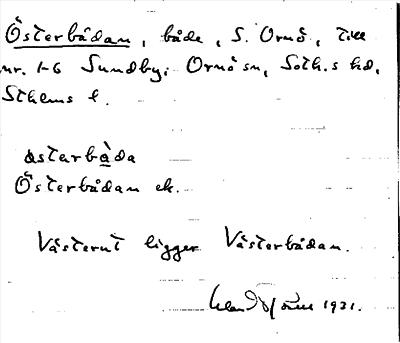 Österbådan, både, S. Ornö, till
nr. 1-6 Sundby, Ornö sn, Soth.s hd,
Sthlms l.
østerbåda
Österbådan ek.
Västerut ligger Västerbådan.
1931.